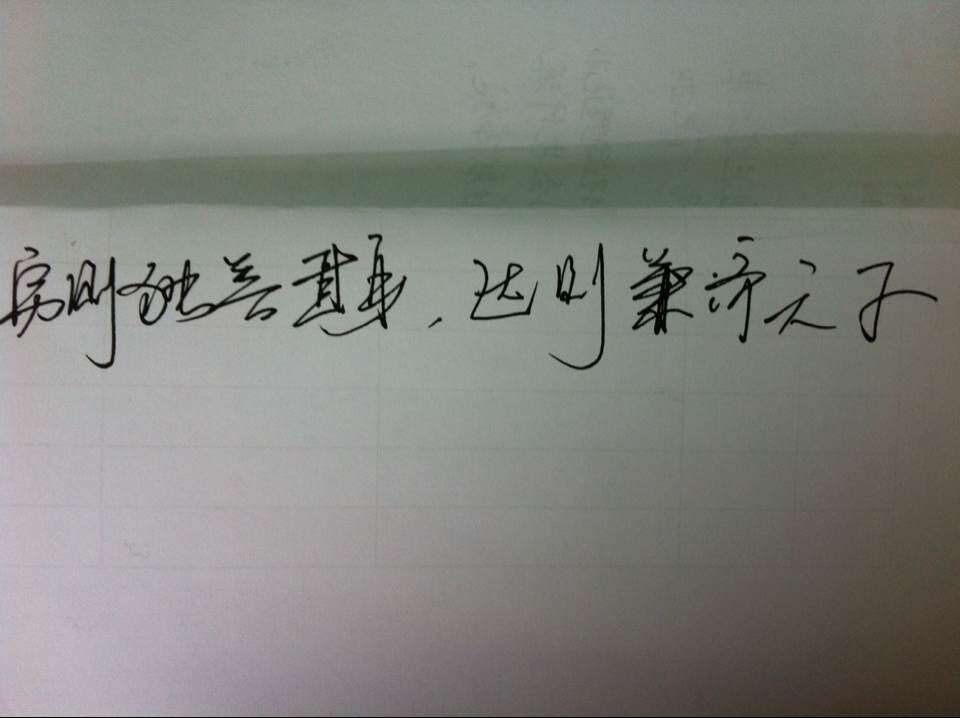 穷则独善其身，达则兼济天下